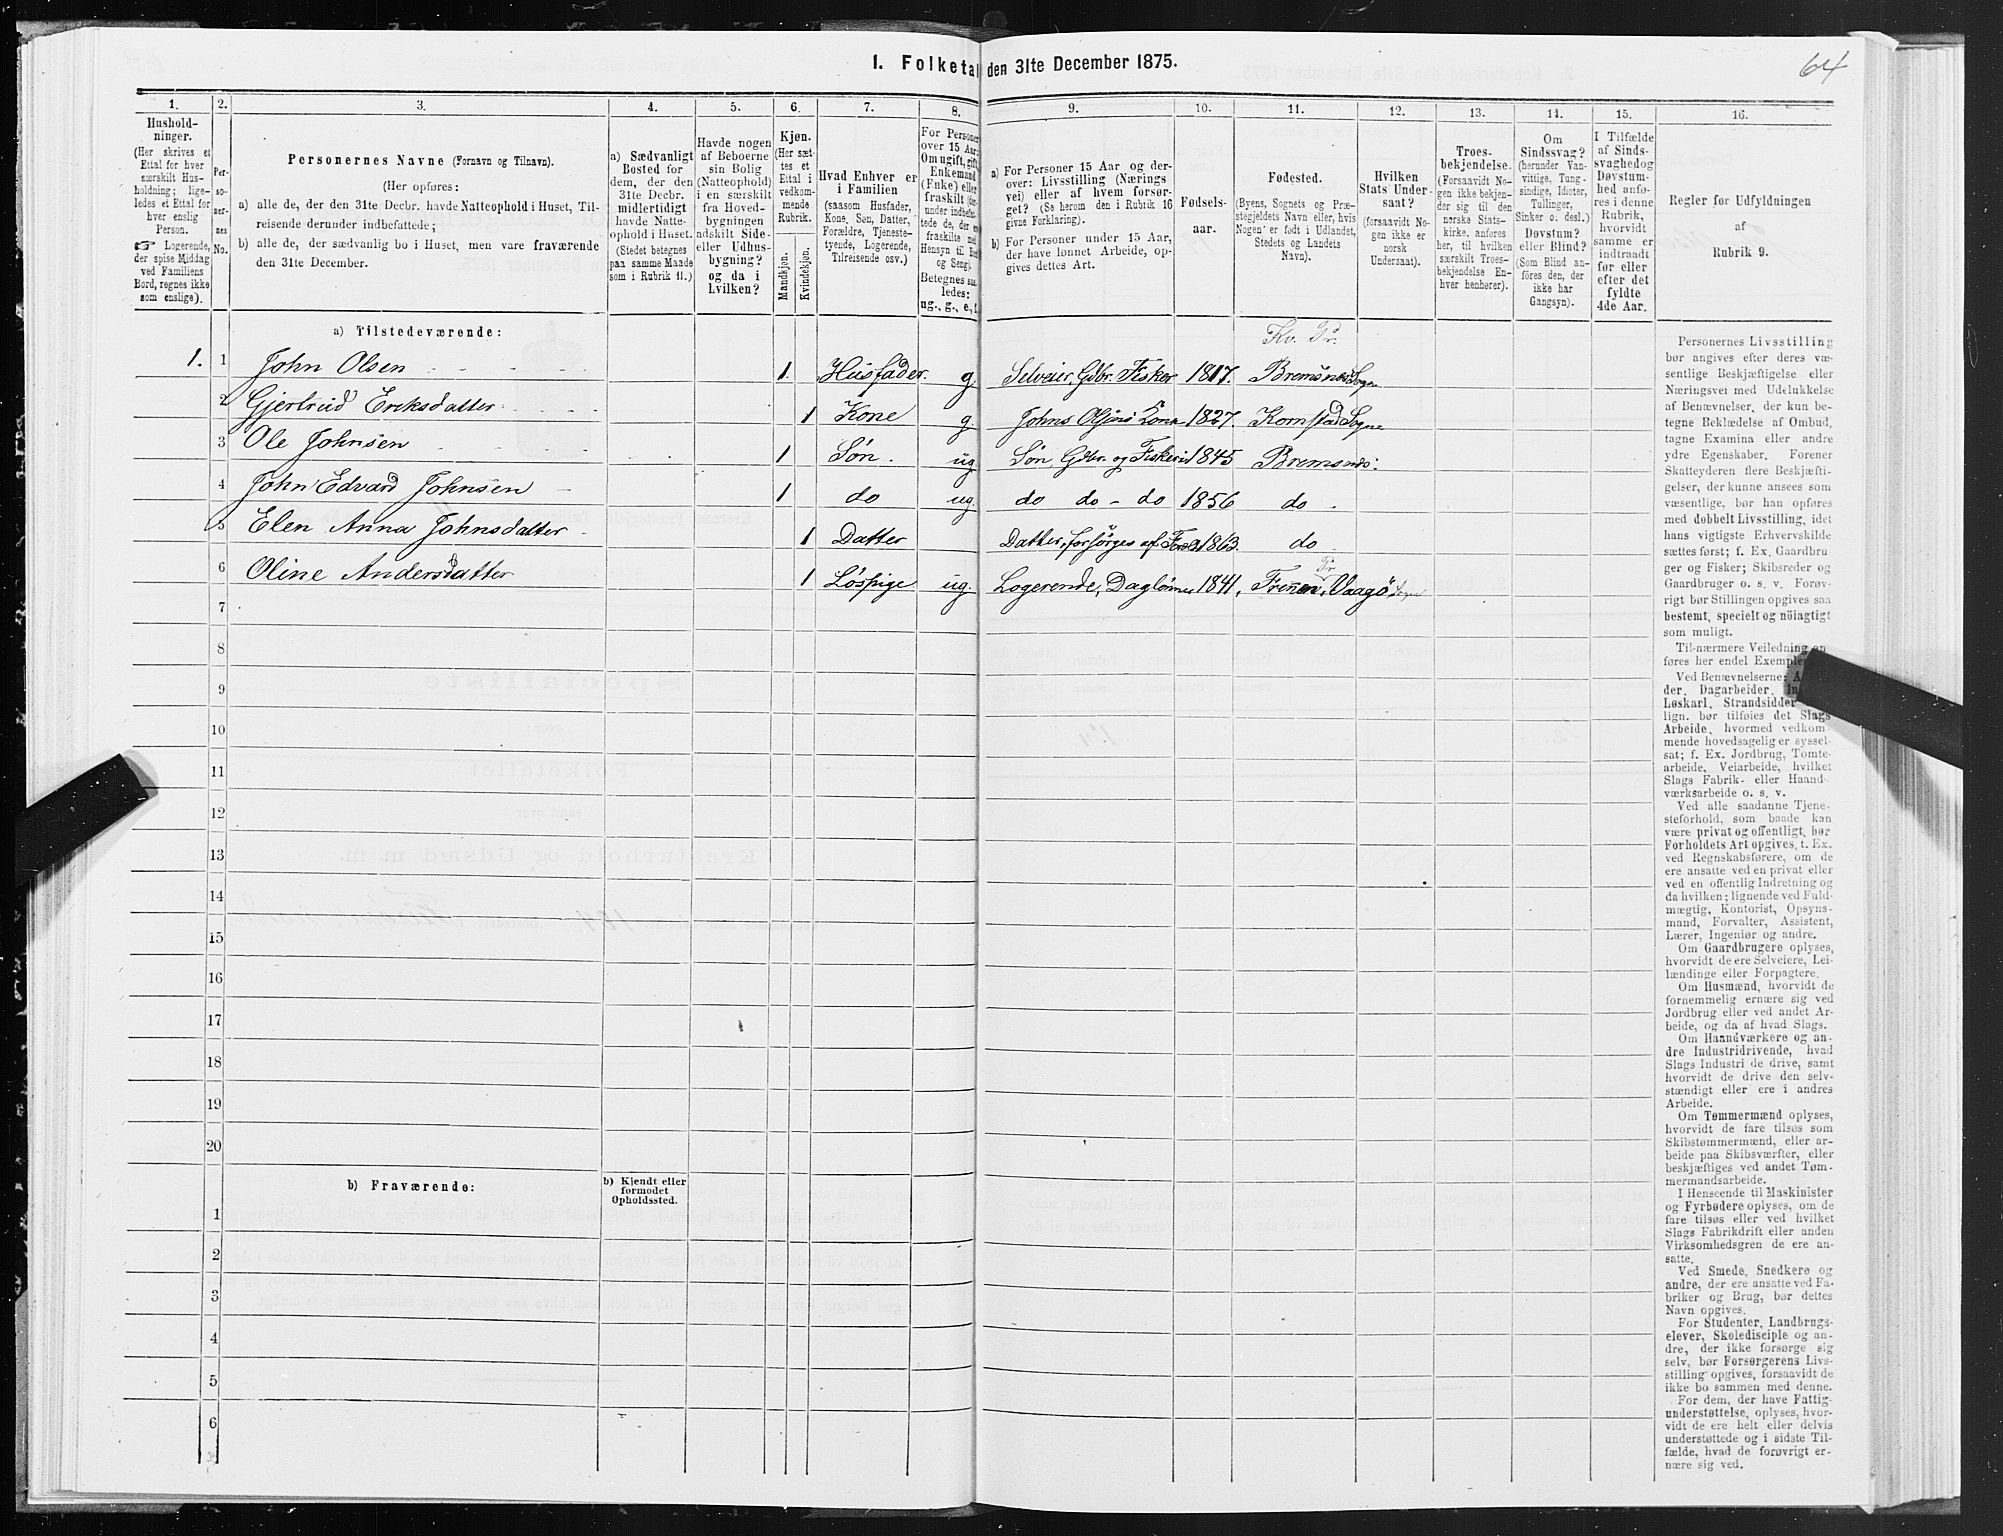 1. Folketal den 31te December 1875.
64
1. 2. 3. 4. 5. 6. 7. 8. 9. 10. 11. 12. 13. 14. 15. 16.
Hushold-
ninger.
(Her skrives et
Ettal for hver
særskilt Hus-
holdning; lige-
ledes et Ettal for
hver enslig
Person.
☞ Logerende,
der spise Middag
ved Familiens
Bord, regnes ikke
som enslige).
Per-
so-
ner-
nes
No.
Personernes Navne (Fornavn og Tilnavn).
(Her opføres:
a) alle de, der den 31te Decbr. havde Natteophold i Huset, Til-
reisende derunder indbefattede;
b) alle de, der sædvanlig bo i Huset, men vare fraværende
den 31te December.
a) Sædvanligt
Bosted for
dem, der den
31te Decbr.
midlertidigt
havde Natte-
ophold i Huset.
(Stedet betegnes
paa samme Maade
som i Rubrik 11.)
Havde nogen
af Beboerne
sin Bolig
(Natteophold)
i en særskilt
fra Hoved-
bygningen
adskilt Side-
eller Udhus-
bygning?
og da i
hvilken?
Kjøn.
(Her sæt-
tes et
Ettal i
vedkom-
mende
Rubrik.
Mandkjøn.
Kvindekjøn.
Hvad Enhver er
i Familien
(saasom Husfader,
Kone, Søn, Datter,
Forældre, Tjeneste-
tyende, Logerende,
Tilreisende osv.)
For Personer
over 15 Aar:
Om ugift, gift,
Enkemand
(Enke) eller
fraskilt
Betegnes saa-
ledes:
ug., g., e., f.
a) For Personer 15 Aar og der-
over: Livsstilling (Nærings
vei) eller af hvem forsør-
get? (Se herom den i Rubrik 16
givne Forklaring).
b) For Personer under 15 Aar,
der have lønnet Arbeide, op-
gives dettes Art.
Fødsels-
aar.
Fødested.
(Byens, Sognets og Præ-
stegjeldets Navn eller, hvis
Nogen er født i Udlandet,
Stedets og Landets
Navn).
Hvilken
Stats Under-
saat?
(forsaavidt No-
gen ikke er
norsk
Undersaat).
Troes-
bekjendelse.
(Forsaavidt No-
gen ikke bekjen-
der sig til den
norske Stats-
kirke, anføres
her, til hvilken
særskilt Troes-
bekjendelse En-
hver henhører).
Om
Sindssvag?
(herunder Van-
vittige, Tung-
sindige, Idioter,
Tullinger,
Sinker o. desl.)
Døvstum?
eller Blind?
(Som Blind an-
føres den, der
ikke har
Gangsyn).
I Tilfælde
af Sinds-
svaghed og
Døvstum-
hed anfø-
res i denne
Rubrik,
hvorvidt
samme er
indtraadt
før eller
efter det
fyldte
4de Aar.
Regler for Udfyldningen
af
Rubrik 9.
a) Tilstedeværende:
Kv. Pr.
1. 1 John Olsen 1. Husfader. g. Selveier, Gdbr. Fisker 1817. Bremsnæs Sogn
2 Gjertrud Eriksdatter 1 Kone g. Johns Olsens Kone 1827. Kornstad Sogn
3 Ole Johnsen 1 Søn. ug. Søn Gdbr. og Fiskeri 1845 Bremsnæs.
4 John Edvard Johnsen 1 do ug. do do - do 1856 do.
5 Elen Anna Johnsdatter 1 Datter Datter, forsörges af 1863. do
6 Oline Andersdatter 1 Löspige ug. Logerende, Daglönner 1841. Frenen, Pr. Vaagö Sogn
7
8
9
10
11
12
13
14
15
16
17
18
19
20
b) Fraværende:
b) Kjendt eller
formodet
Opholdssted.
1
2
3
4
5
6
Personernes Livsstilling
bør angives efter deres væ-
sentlige Beskjæftigelse eller
Næringsvei med Udelukkelse
af Benævnelser, der kun be-
tegne Beklædelse af Ombud,
tagne Examina eller andre
ydre Egenskaber. Forener
Skatteyderen flere Beskjæfti-
gelser, der kunne ansees som
væsentlige, bør han opføres
med dobbelt Livsstilling, idet
hans vigtigste Erhvervskilde
sættes først; f. Ex. Gaardbru
ger og Fisker; Skibsreder og
Gaardbruger o. s. v. Forøv-
rigt bør Stillingen opgives saa
bestemt, specielt og nøiagtigt
som muligt.
Til nærmere Veiledning an
føres her endel Exempler
Ved Benævnelserne:
der, Dagarbeider,
Løskarl, Strandsidder
lign. bør tilføies det Slags
Arbeide, hvormed vedkom-
mende hovedsagelig er syssel-
sat; f. Ex. Jordbrug, Tomte-
arbeide, Veiarbeide, hvilket
Slags Fabrik- eller Haand-
værksarbeide o. s. v.
Ved alle saadanne Tjene-
steforhold, som baade kan
være privat og offentligt, bør
Forholdets Art opgives, t. Ex.
ved Regnskabsførere, om de
ere ansatte ved en privat eller
ved en offentlig Indretning og
da hvilken; lignende ved Fuld-
mægtig, Kontorist, Opsyns-
mand, Forvalter, Assistent,
Lærer, Ingeniør og andre.
Om Gaardbrugere oplyses,
hvorvidt de ere Selveiere, Lei-
lændinge eller Forpagtere.
Om Husmænd, hvorvidt de
fornemmelig ernære sig ved
Jordbrug eller ved andet Ar-
beide, og da af hvad Slags.
Om Haandværkere og an-
dre Industridrivende, hvad
Slags Industri de drive, samt
hvorvidt de drive den selv-
stændigt eller ere i andres
Arbeide.
Om Tømmermænd oplyses,
hvorvidt de fare tilsøs som
Skibstømmermænd, eller ar-
beide paa Skibsværfter, eller
beskjæftiges ved andet Tøm-
mermandsarbeide.
I Henseende til Maskinister
og Fyrbødere oplyses, om de
fare tilsøs eller ved hvilket
Slags Fabrikdrift eller anden
Virksomhedsgren de ere an-
satte.
Ved Smede, Snedkere og
andre, der ere ansatte ved Fa-
briker og Brug, bør dettes
Navn opgives.
For Studenter, Landbrugs-
elever, Skoledisciple og an-
dre, der ikke forsørge sig
selv, bør Forsørgerens Livs-
stilling opgives, forsaavidt de
ikke bo sammen med denne.
For dem, der have Fattig-
understøttelse, oplyses, hvor-
vidt de ere helt eller delvis
understøttede og i sidste Til-
fælde, hvad de forøvrigt er-
nære sig ved.